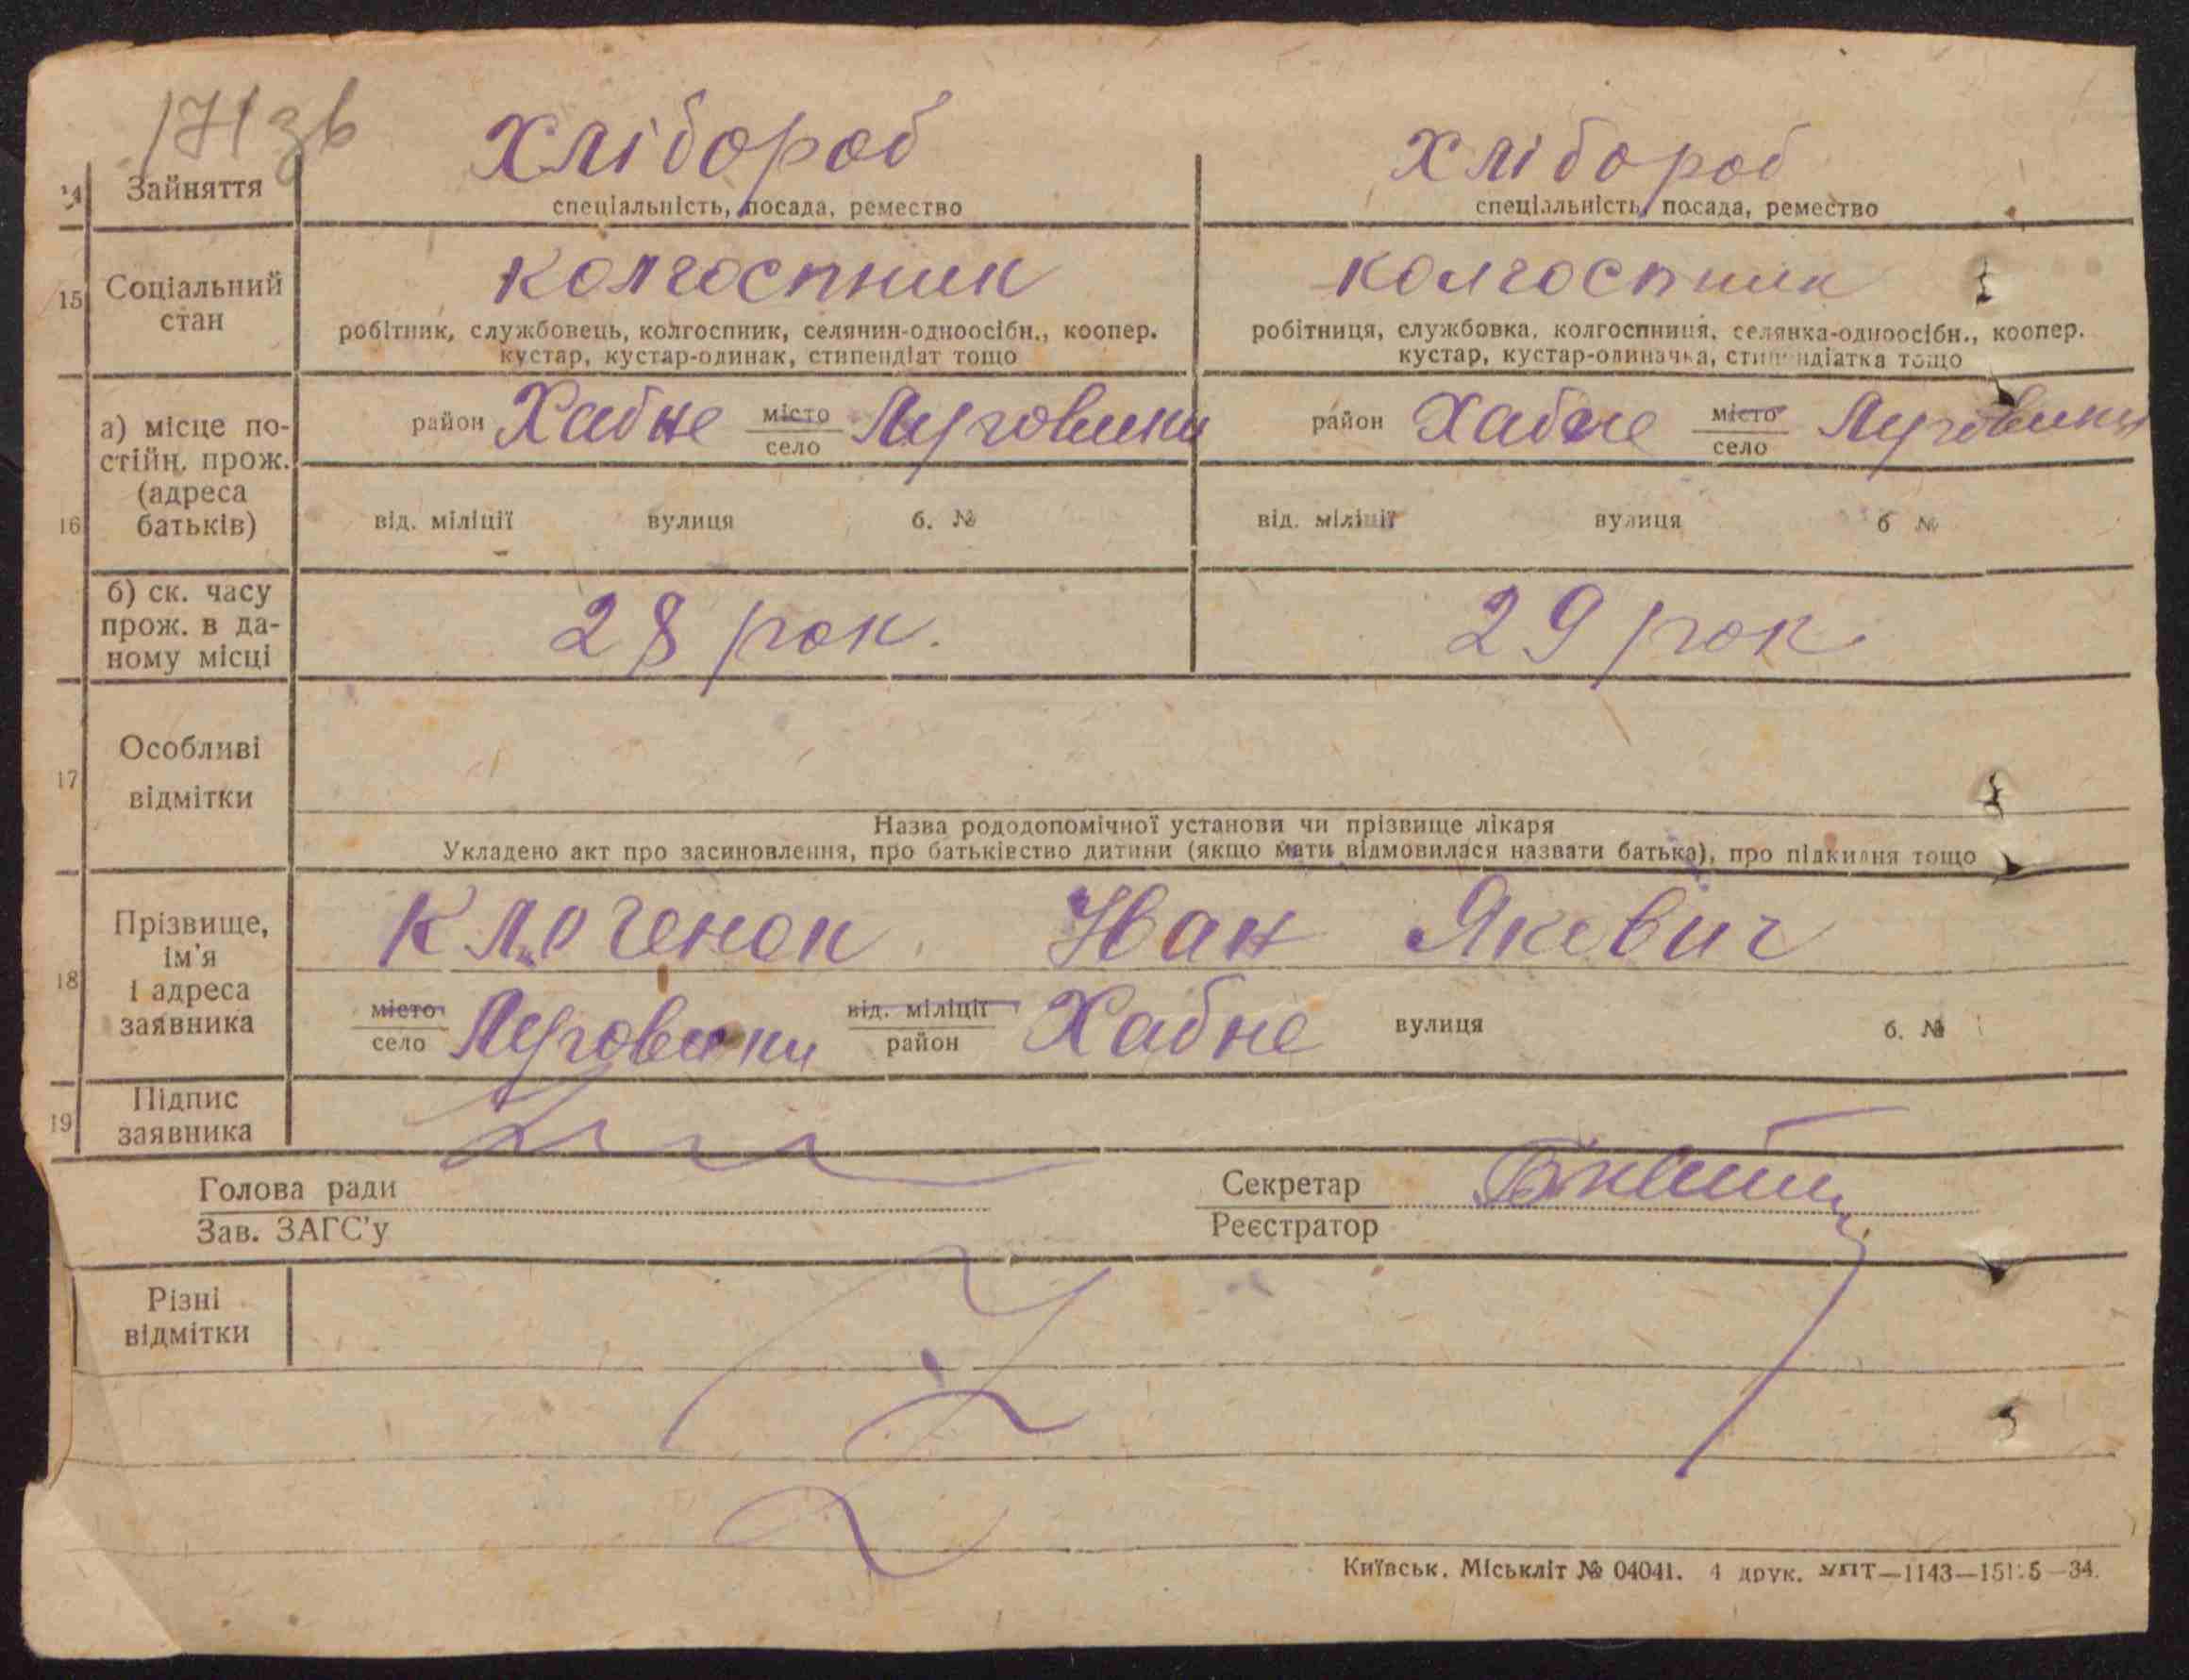 171 зв
хлібороб хлібороб
14 Зайняття
спеціальність, посада, ремество спеціальність, посада, ремество
колгоспник колгоспник
15 Соціальний стан
робітник, службовець, колгоспник, селянин-одноосібн., коопер. робітниця, службовка, колгоспниця, селянка-одноосібн., коопер.
кустар, кустар-одинак, стипендіат тощо кустар, кустар-одиначка, стипендіатка тощо
16 а) місце по-
стійн. прож.
(адреса
батьків)
район Хабне місто село Луговики район Хабне місто село Луговики
від. міліції вулиця б. № від. міліції вулиця б №
б) ск. часу
прож. в да-
ному місці
28 рок. 29 рок
17 Особливі
відмітки
Назва рододопомічної установи чи прізвище лікаря
Укладено акт про засиновлення, про батьківство дитини (якщо мати відмовилася назвати батька), про підкидня тощо
18 Прізвище,
ім'я
і адреса
заявника
Клоченок Іван Якович
місто село Луговики від. міліції район Хабне вулиця б. №
19 Підпис
заявника
Голова ради Секретар
Зав. ЗАГС'у Реєстратор
Різні
відмітки
Київськ. Міськліт № 04041. 4 друк. УПТ—1143—15